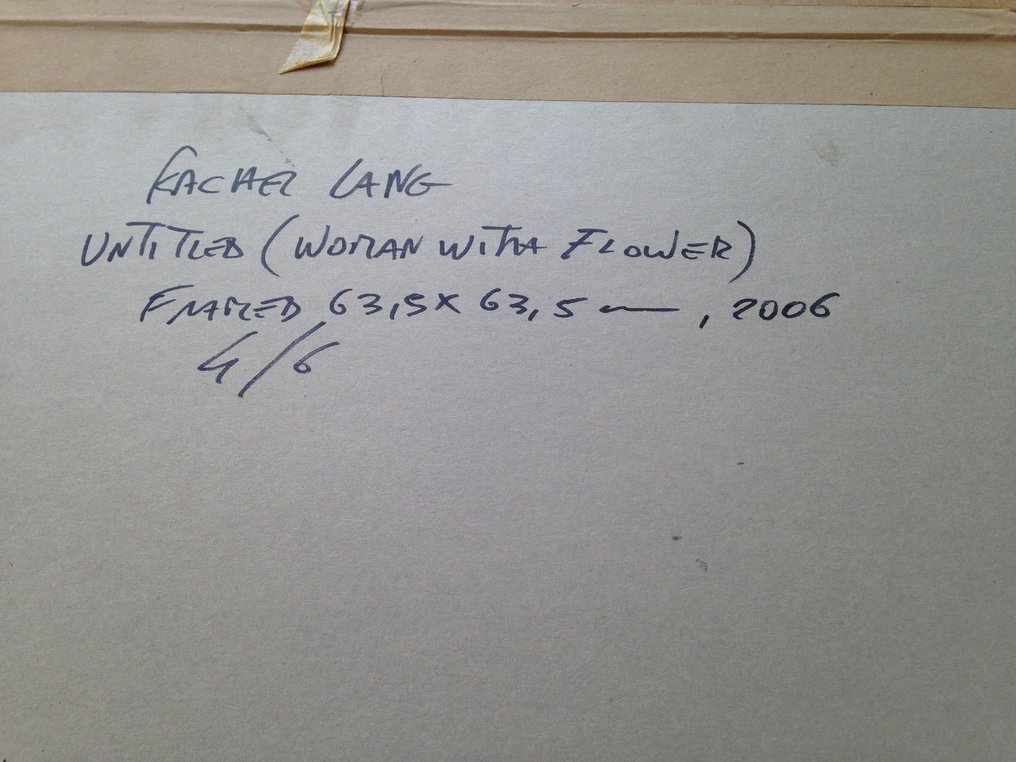 RACHEL LANG
UNTITLED (WOMAN WITH A FLOWER)
FRAMED 63,5 X 63,5 cm, 2006
4/6